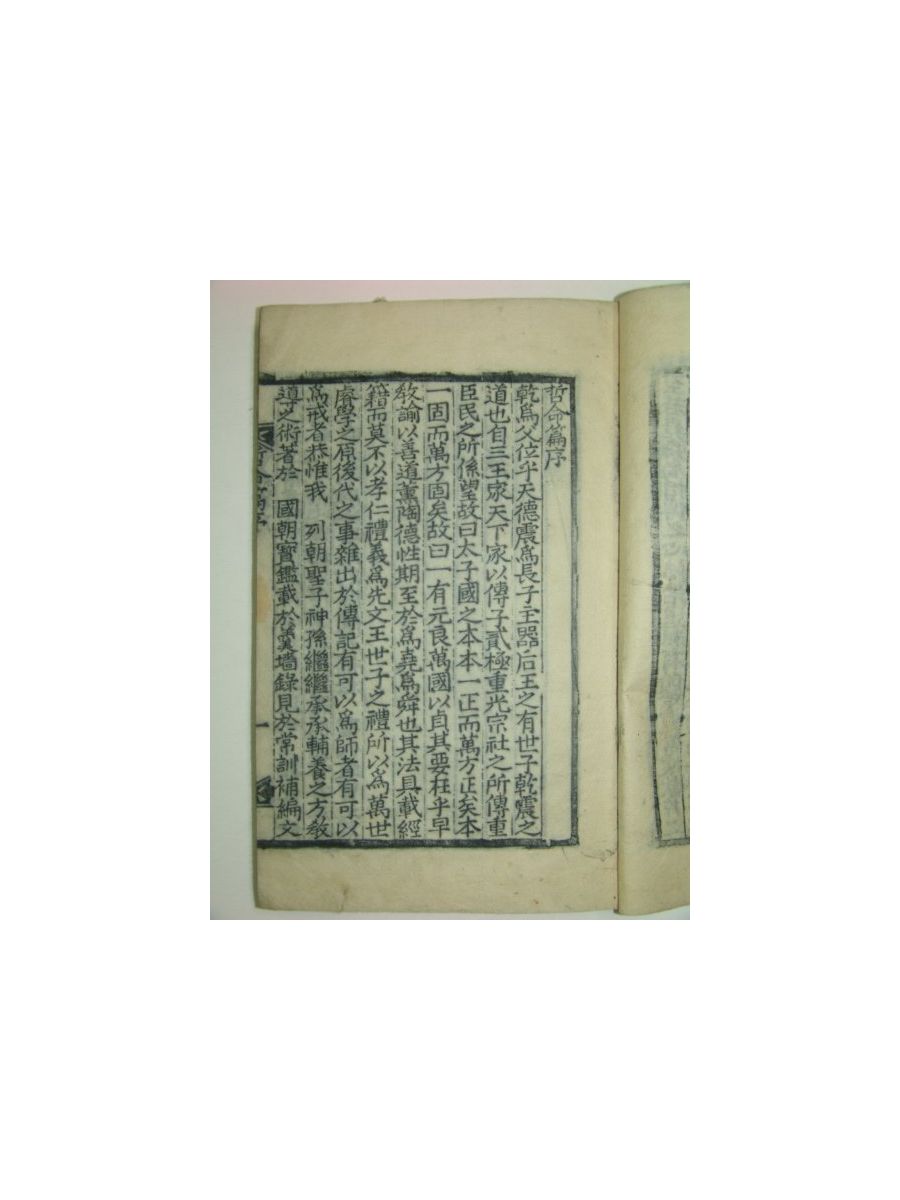 哲命篇序
乾爲父位乎天德震爲長子主器后王之有世子乾震之
道也自三王家天下家以傳子貳極重光宗社之所傳重
臣民之所係望故曰太子國之本本一正而萬方正矣本
一固而萬方固矣故曰一有元良萬國以貞其要在乎早
敎諭以善道薰陶德性期至於爲堯爲舜也其法具載經
籍而莫不以孝仁禮義爲先文王世子之禮所以爲萬世
睿學之原後代之事雜出於傳記有可以爲師者有可以
爲戒者恭惟我 列朝聖子神孫繼繼承承輔養之方敎
導之術著於 國朝寶鑑載於羹墻錄見於常訓補編文
哲命篇序
一